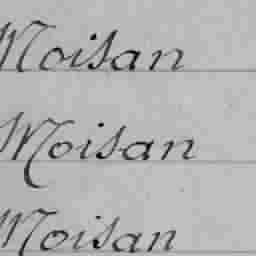 Moisan
Moisan
Moisan